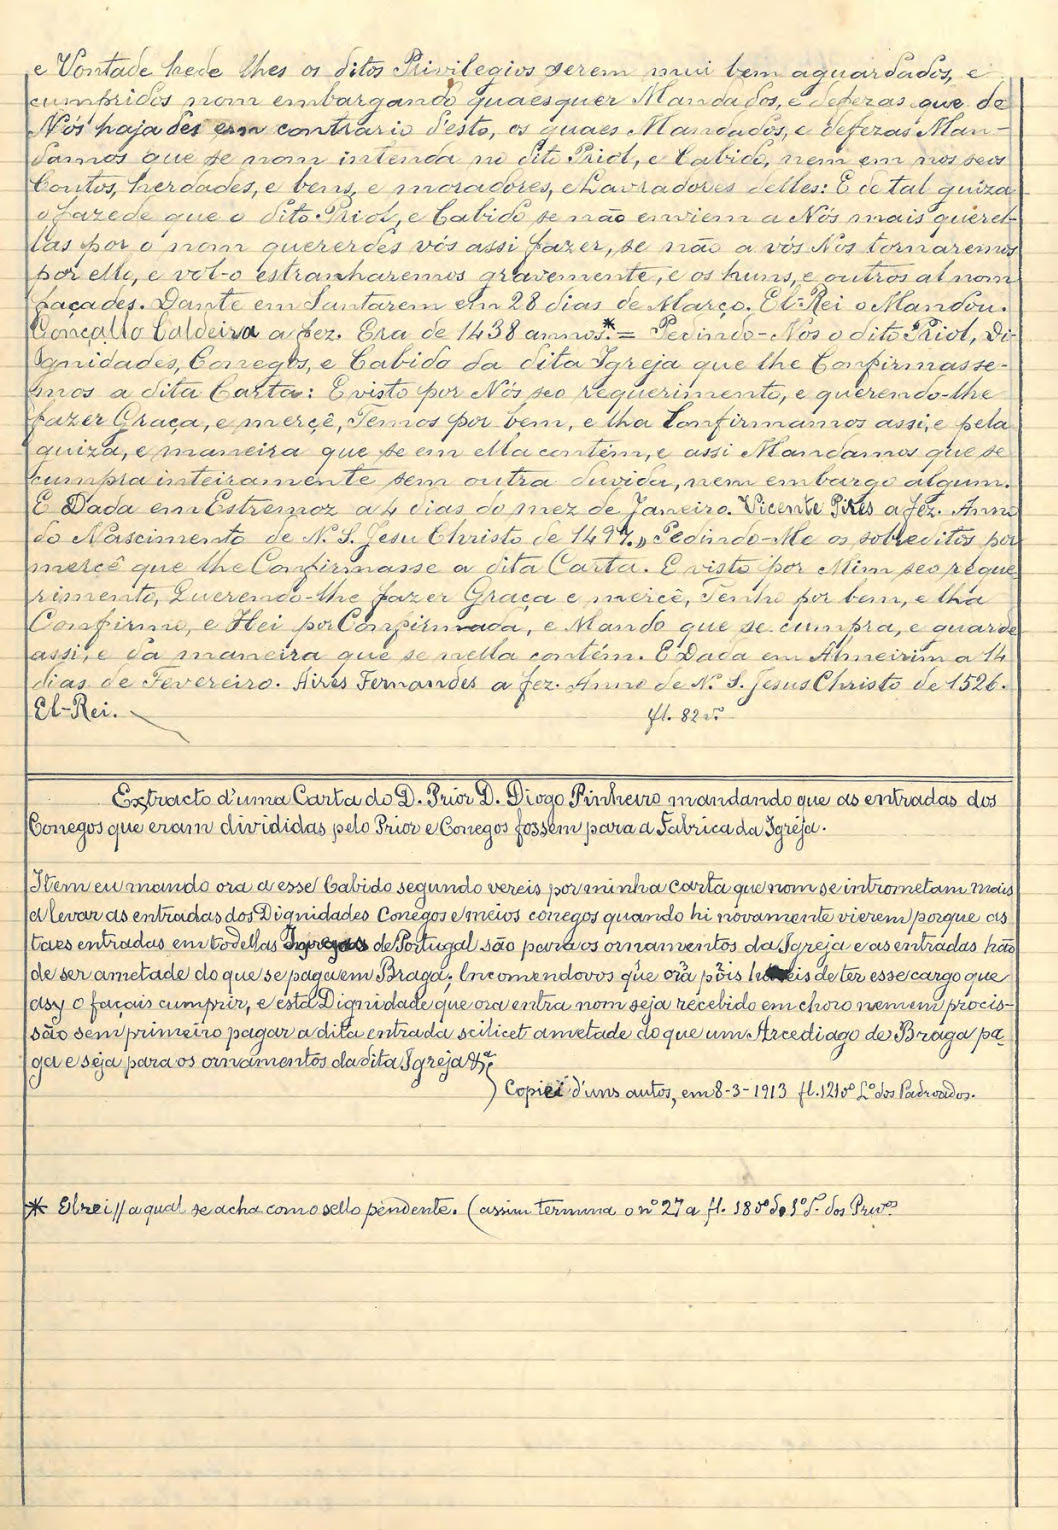 e Vontade hede lhes os ditos Privilegios serem mui bem aguardados, e
cumpridos nom embargando quaesquer Mandados, e defezas que de
Nós hajades em contrario desto, os quaes Mandados, e defezas Man-
damos que se nom intenda no dito Priol, e Cabido, nem em nos seos
Coutos, herdades, e bens, e moradores, e Lavradores delles: E de tal guiza
o fazede que o dito Priol, e Cabido se não enviem a Nós mais querel-
las por o nom quererdes vós assi fazer, se não a vós Nos tornaremos
por ello, e vol-o estranharemos gravemente, e os huns, e outros al nom
façades. Dante em Santarem em 28 dias de Março. El-Rei o Mandou.
Gonçallo Caldeira a fez. Era de 1438 annos.* = Pedindo-Nos o dito Priol, Di-
gnidades, Conegos, e Cabido da dita Igreja que lhe Confirmasse-
mos a dita Carta: E visto por Nós seo requerimento, e querendo-lhe
fazer Graça, e mercê, Temos por bem, e lha Confirmamos assi, e pela
guiza, e maneira que se em ella contém, e assi Mandamos que se
cumpra inteiramente sem outra duvida, nem embargo algum.
E Dada em Estremoz a 4 dias do mez de Janeiro. Vicente Pires a fez. Anno
do Nascimento de N. S. Jesu Christo de 1497.,, Pedindo-Me os sobreditos por
mercê que lhe Confirmasse a dita Carta. E visto por Mim seo reque-
rimento, Querendo-lhe fazer Graça e mercê, Tenho por bem, e lha
Confirmo, e Hei por Confirmada, e Mando que se cumpra, e guarde
assi, e da maneira que se nella contém. E Dada em Almeirim a 14
dias de Fevereiro. Aires Fernandes a fez. Anno de N. S. Jesus Christo de 1526.
El-Rei.
fl. 82 vº
Extracto d'uma Carta do D. Prior D. Diogo Pinheiro mandando que as entradas dos
Conegos que eram divididas pelo Prior e Conegos fossem para a Fabrica da Igreja.
Item eu mando ora a esse Cabido segundo vereis por minha carta que nom se intrometam mais
a levar as entradas dos Dignidades Conegos e meios conegos quando hi novamente vierem porque as
taes entradas em todellas Igrejas de Portugal são para os ornamentos da Igreja e as entradas hão
de ser ametade do que se paga em Braga; Encomendovos que ora pois haveis de ter esse cargo que
asy o façais cumprir, e esta Dignidade que ora entra nom seja recebido em choro nem em procis-
são sem primeiro pagar a dita entrada scilicet ametade do que um Arcediago de Braga pa-
ga e seja para os ornamentos da dita Igreja &ª
Copiei d'uns autos, em 8-3-1913 fl. 121 vº Lº dos Padroados.
* Elrei // a qual se acha com o sello pendente. (assim termina o nº 27 a fl. 18 vº do 1º L. dos Privos